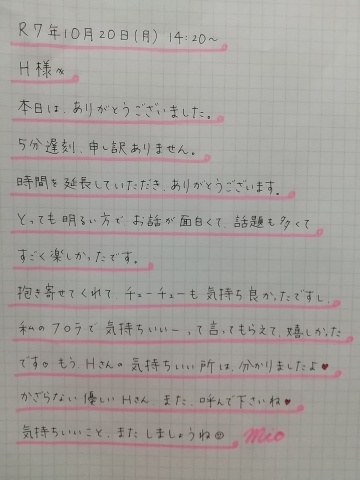 R7年10月20日(月) 14:20~
H様
本日は、ありがとうございました。
5分遅刻、申し訳ありません。
時間を延長していただき、ありがとうございます。
とっても明るい方で お話が面白くて、話題も多くて
すごく楽しかったです。
抱き寄せてくれて チューチューも 気持ち良かったですし、
私のフロラで気持ちいいーって言ってもらえて、嬉しかった
です。もう、Hさんの気持ちいい所は、分かりましたよ♥
かざらない優しいHさん、また、呼んで下さいね♥
気持ちいいこと、またしましょうね☺ Mio